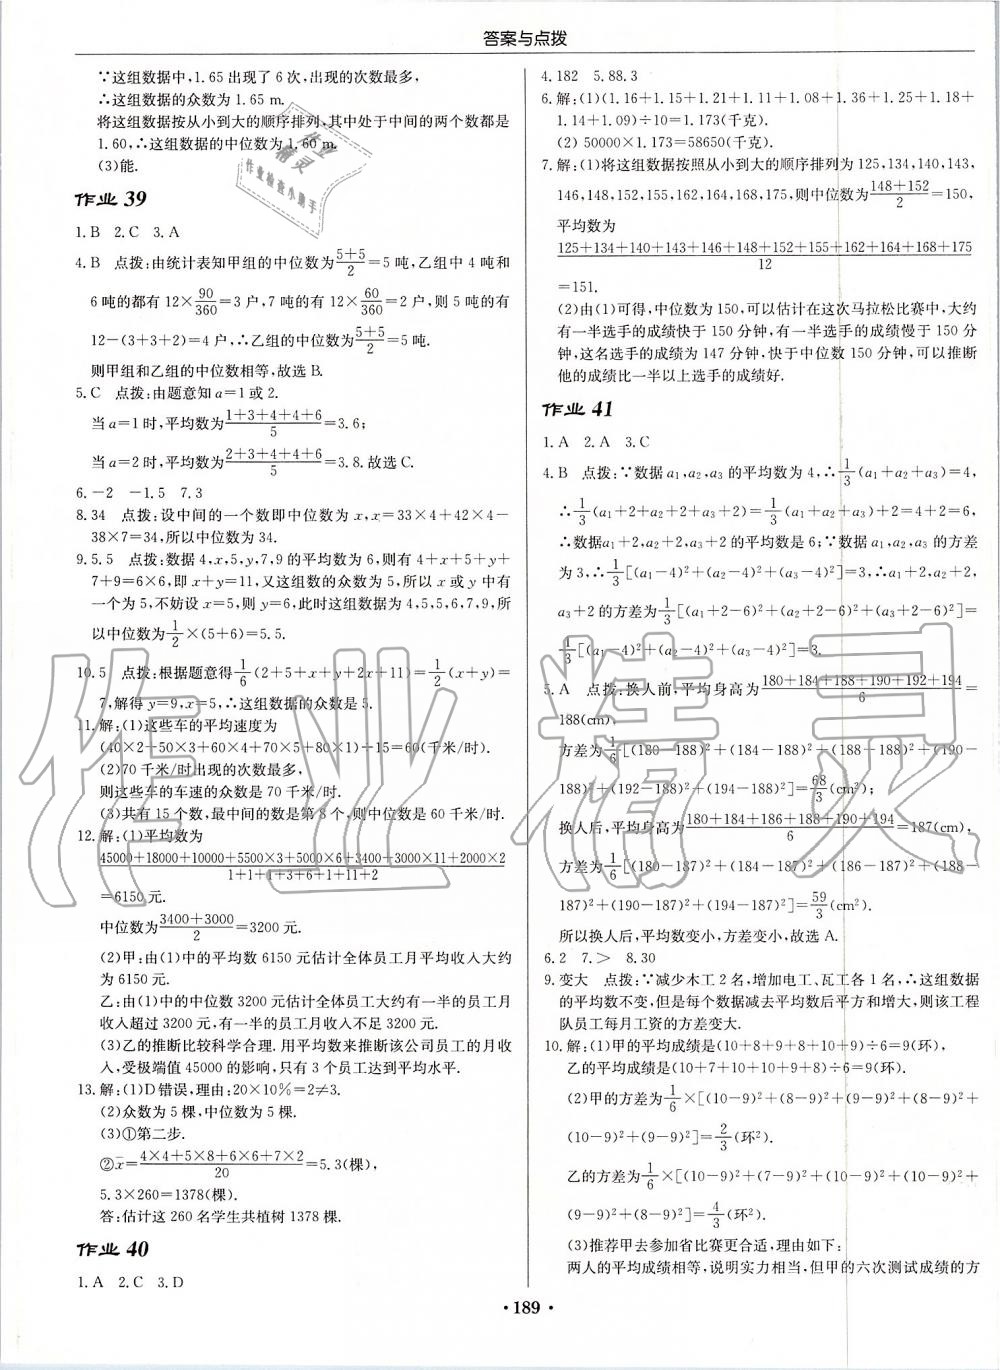 答案与点拨
∵这组数据中,1.65出现了6次,出现的次数最多,
∴这组数据的众数为1.65 m.
将这组数据按从小到大的顺序排列,其中处于中间的两个数都是
1.60,∴这组数据的中位数为1.60 m.
(3)能.
作业 39
1.B 2.C 3.A
4.B 点拨:由统计表知甲组的中位数为(5+5)/2=5吨,乙组中4吨和
6吨的都有12×90/360=3户,7吨的有12×60/360=2户,则5吨的有
12-(3+3+2)=4户,∴乙组的中位数为(5+5)/2=5吨.
则甲组和乙组的中位数相等,故选B.
5.C 点拨:由题意知a=1或2.
当a=1时,平均数为(1+3+4+4+6)/5=3.6;
当a=2时,平均数为(2+3+4+4+6)/5=3.8.故选C.
6.-2 -1.5 7.3
8.34 点拨:设中间的一个数即中位数为x,x=33×4+42×4-
38×7=34,所以中位数为34.
9.5.5 点拨:数据4,x,5,y,7,9的平均数为6,则有4+x+5+y+
7+9=6×6,即x+y=11,又这组数的众数为5,所以x或y中有
一个为5,不妨设x=5,则y=6,此时这组数据为4,5,5,6,7,9,所
以中位数为1/2×(5+6)=5.5.
10.5 点拨:根据题意得1/6(2+5+x+y+2x+11)=1/2(x+y)=
7,解得y=9,x=5,∴这组数据的众数是5.
11.解:(1)这些车的平均速度为
(40×2+50×3+60×4+70×5+80×1)÷15=60(千米/时).
(2)70千米/时出现的次数最多,
则这些车的车速的众数是70千米/时.
(3)共有15个数,最中间的数是第8个,则中位数是60千米/时.
12.解:(1)平均数为
(45000+18000+10000+5500×3+5000×6+3400+3000×11+2000×2)/(1+1+1+3+6+1+11+2)
=6150元.
中位数为(3400+3000)/2=3200元.
(2)甲:由(1)中的平均数6150元估计全体员工月平均收入大约
为6150元.
乙:由(1)中的中位数3200元估计全体员工大约有一半的员工月
收入超过3200元,有一半的员工月收入不足3200元.
(3)乙的推断比较科学合理.用平均数来推断该公司员工的月收
入,受极端值45000的影响,只有3个员工达到平均水平.
13.解:(1)D错误,理由:20×10%=2≠3.
(2)众数为5棵,中位数为5棵.
(3)①第二步.
②x̄=(4×4+5×8+6×6+7×2)/20=5.3(棵),
5.3×260=1378(棵).
答:估计这260名学生共植树1378棵.
作业 40
1.A 2.C 3.D
4.182 5.88.3
6.解:(1)(1.16+1.15+1.21+1.11+1.08+1.36+1.25+1.18+
1.14+1.09)÷10=1.173(千克).
(2)50000×1.173=58650(千克).
7.解:(1)将这组数据按照从小到大的顺序排列为125,134,140,143,
146,148,152,155,162,164,168,175,则中位数为(148+152)/2=150,
平均数为
(125+134+140+143+146+148+152+155+162+164+168+175)/12
=151.
(2)由(1)可得,中位数为150,可以估计在这次马拉松比赛中,大约
有一半选手的成绩快于150分钟,有一半选手的成绩慢于150分
钟,这名选手的成绩为147分钟,快于中位数150分钟,可以推断
他的成绩比一半以上选手的成绩好.
作业 41
1.A 2.A 3.C
4.B 点拨:∵数据a₁,a₂,a₃的平均数为4,∴1/3(a₁+a₂+a₃)=4,
∴1/3(a₁+2+a₂+2+a₃+2)=1/3(a₁+a₂+a₃)+2=4+2=6,
∴数据a₁+2,a₂+2,a₃+2的平均数是6;∵数据a₁,a₂,a₃的方差
为3,∴1/3[(a₁-4)²+(a₂-4)²+(a₃-4)²]=3,∴a₁+2,a₂+2,
a₃+2的方差为1/3[(a₁+2-6)²+(a₂+2-6)²+(a₃+2-6)²]=
1/3[(a₁-4)²+(a₂-4)²+(a₃-4)²]=3.
5.A 点拨:换人前,平均身高为(180+184+188+190+192+194)/6=
188(cm),
方差为1/6[(180-188)²+(184-188)²+(188-188)²+(190-
188)²+(192-188)²+(194-188)²]=68/3(cm²);
换人后,平均身高为(180+184+186+188+190+194)/6=187(cm),
方差为1/6[(180-187)²+(184-187)²+(186-187)²+(188-
187)²+(190-187)²+(194-187)²]=59/3(cm²).
所以换人后,平均数变小,方差变小,故选A.
6.2 7.> 8.30
9.变大 点拨:∵减少木工2名,增加电工、瓦工各1名,∴这组数据
的平均数不变,但是每个数据减去平均数后平方和增大,则该工程
队员工每月工资的方差变大.
10.解:(1)甲的平均成绩是(10+8+9+8+10+9)÷6=9(环),
乙的平均成绩是(10+7+10+10+9+8)÷6=9(环).
(2)甲的方差为1/6×[(10-9)²+(8-9)²+(9-9)²+(8-9)²+
(10-9)²+(9-9)²]=2/3(环²).
乙的方差为1/6×[(10-9)²+(7-9)²+(10-9)²+(10-9)²+
(9-9)²+(8-9)²]=4/3(环²).
(3)推荐甲去参加省比赛更合适,理由如下:
两人的平均成绩相等,说明实力相当,但甲的六次测试成绩的方
·189·
作业精灵
作业
精灵
作业检查小助手